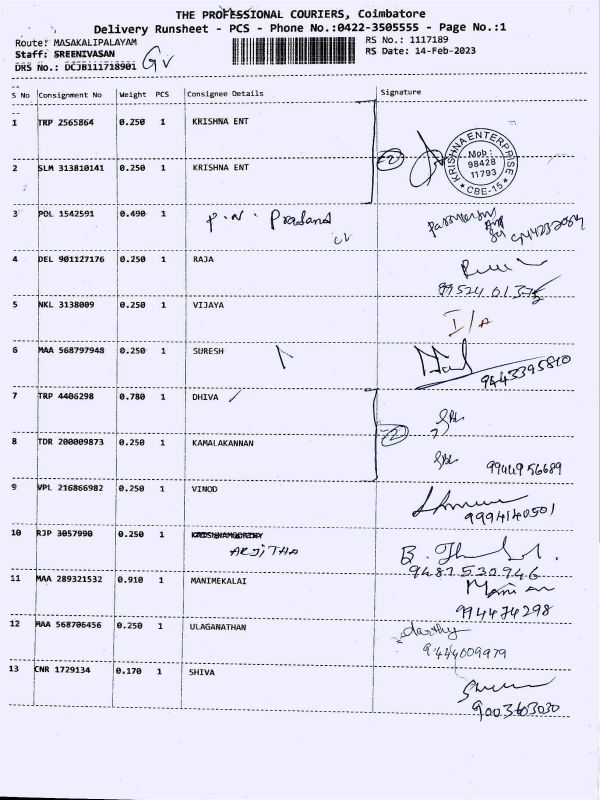 THE PROFESSIONAL COURIERS, Coimbatore
Delivery Runsheet - PCS - Phone No.:0422-3505555 - Page No.:1
Route: MASAKALIPALAYAM
RS No.: 1117189
Staff: SREENIVASAN
RS Date: 14-Feb-2023
DRS No.: DCJB111718901
S No Consignment No Weight PCS Consignee Details Signature
1 TRP 2565864 0.250 1 KRISHNA ENT
KRISHNA ENTERPRISE
Mob:
98428
11793
CBE-15
2 SLM 313810141 0.250 1 KRISHNA ENT
3 POL 1542591 0.490 1 P.N. Prasana
4 DEL 901127176 0.250 1 RAJA
99524 01375
5 NKL 3138009 0.250 1 VIJAYA I/A
6 MAA 568797948 0.250 1 SURESH
9443395810
7 TRP 4406298 0.780 1 DHIVA
8 TDR 200009873 0.250 1 KAMALAKANNAN
9944956689
9 VPL 216866982 0.250 1 VINOD
9994140501
10 RJP 3057990 0.250 1
ARJITHA
9487530946
11 MAA 289321532 0.910 1 MANIMEKALAI
994474298
12 MAA 568706456 0.250 1 ULAGANATHAN
9444009979
13 CNR 1729134 0.170 1 SHIVA
9003603030